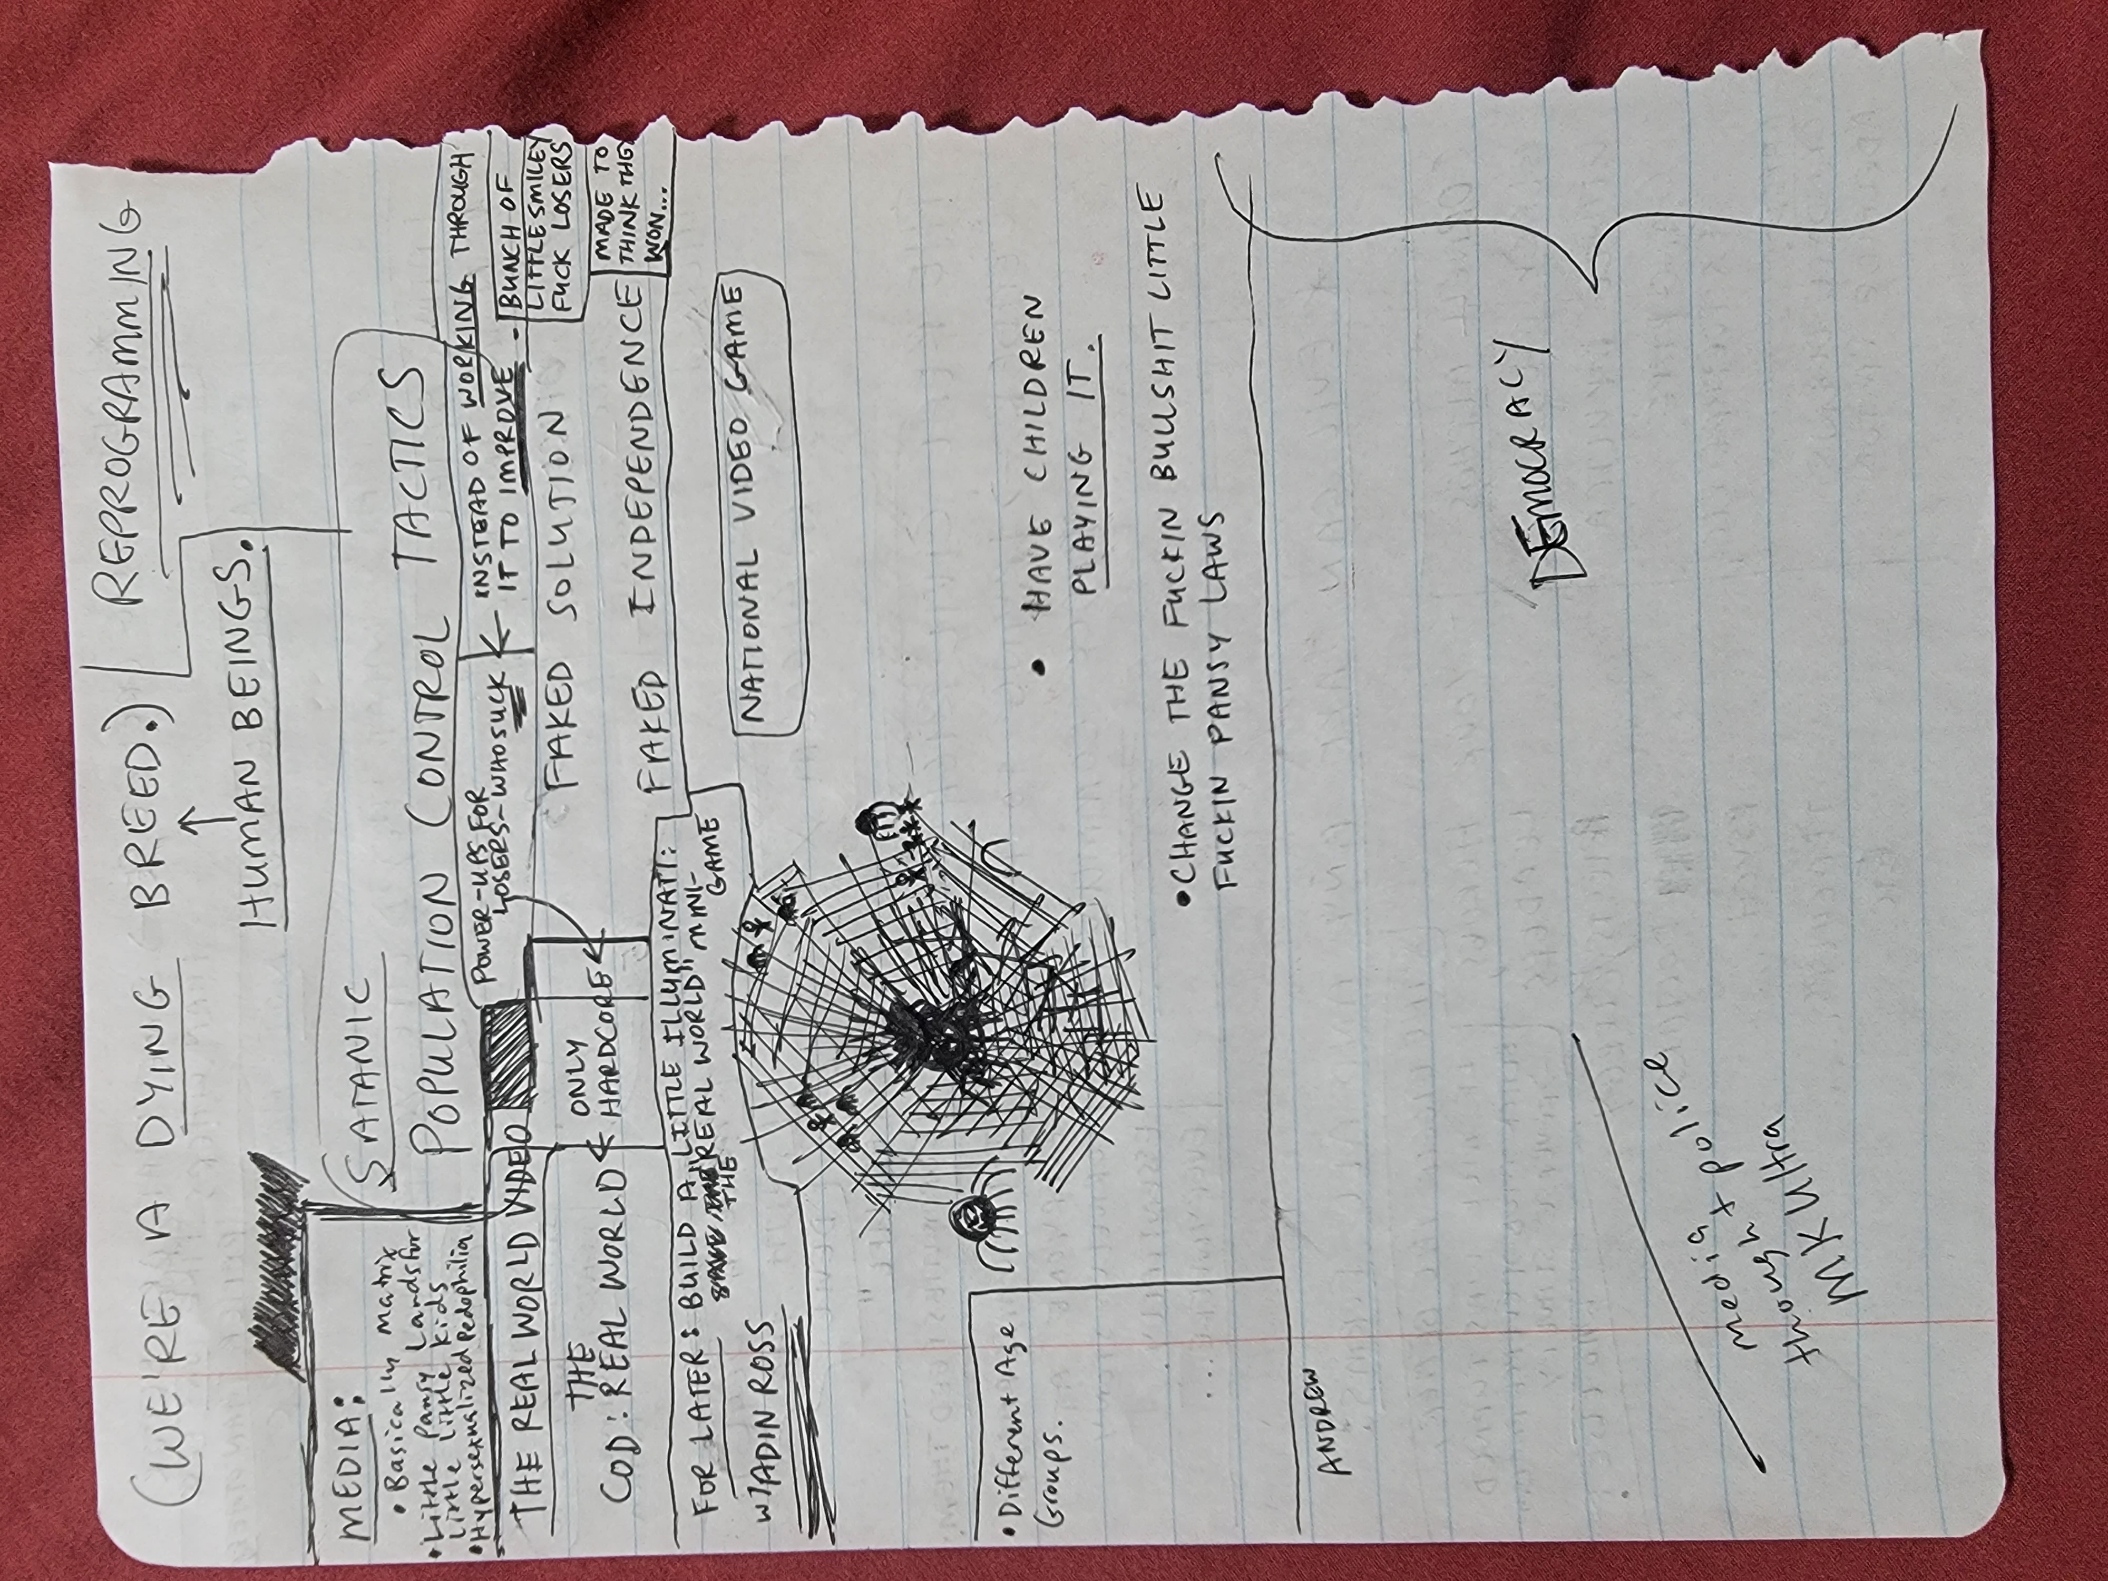 (WE'RE A DYING BREED.)
REPROGRAMMING
HUMAN BEINGS.
MEDIA:
• Basically Matrix
• Little Pansy Lands for
little little kids
• Hypersexualized Pedophilia
SATANIC
POPULATION CONTROL TACTICS
POWER-UPS FOR
LOSERS-WHO SUCK
INSTEAD OF WORKING THROUGH
IT TO IMPROVE
- BUNCH OF
LITTLE SMILEY
FUCK LOSERS
THE REAL WORLD VIDEO
THE
COD: REAL WORLD
ONLY
HARDCORE
FAKED SOLUTION
FAKED INDEPENDENCE
MADE TO
THINK THEY
WON...
FOR LATER: BUILD A LITTLE ILLUMINATI:
"REAL WORLD" MINI-
THE
GAME
W/ADIN ROSS
NATIONAL VIDEO GAME
• Different Age
Groups.
• HAVE CHILDREN
PLAYING IT.
• CHANGE THE FUCKIN BULLSHIT LITTLE
FUCKIN PANSY LAWS
ANDREW
DEMOCRACY
media
thought police
MK Ultra